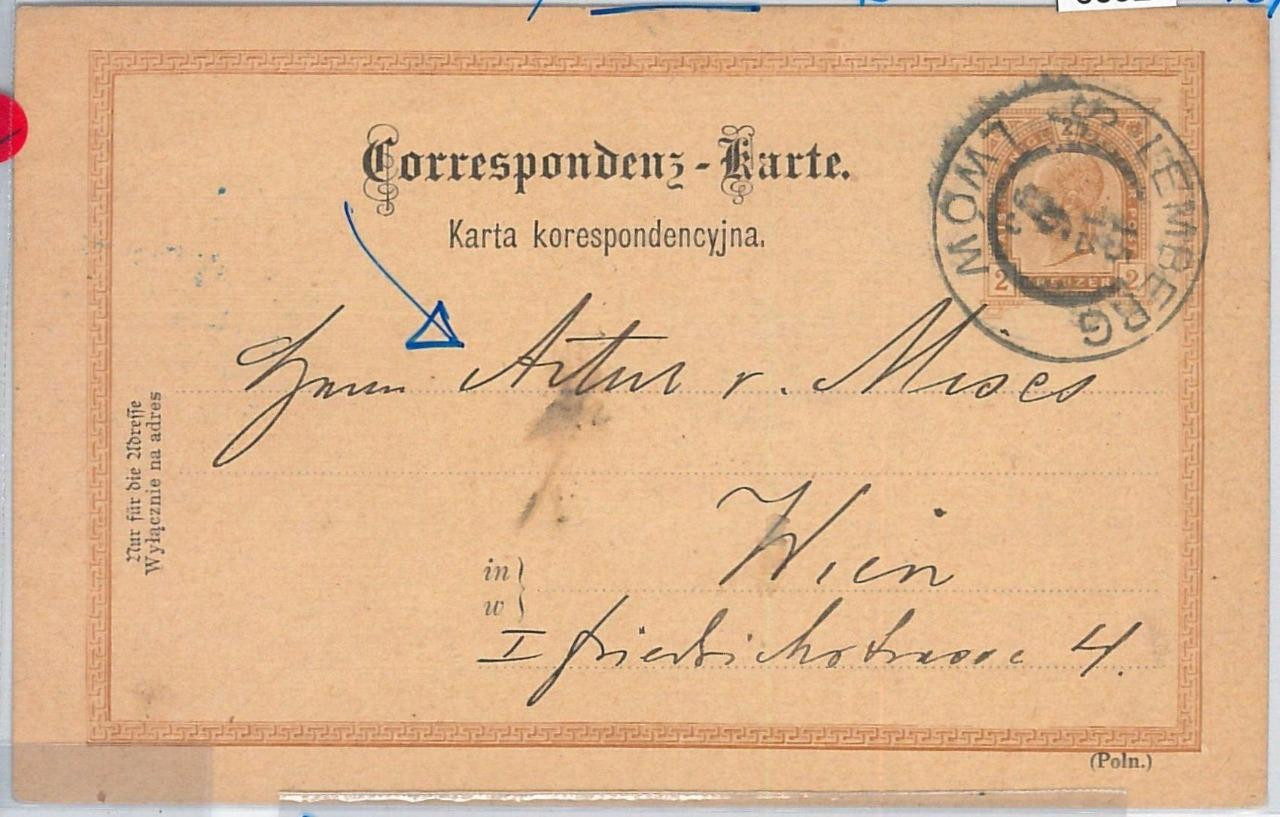 Correspondenz-Karte.
Karta korespondencyjna.
LEMBERG
LWÓW
2 KREUZER 2
Herrn Artur v. Mises
Wien
in
w
I Friedrichstrasse 4.
Nur für die Adresse
Wyłącznie na adres
(Poln.)